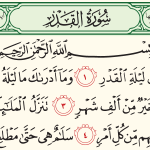 سُورَةُ الْقَدْرِ
بِسْمِ اللَّهِ الرَّحْمَٰنِ الرَّحِيمِ
لَيْلَةِ الْقَدْرِ ١ وَمَا أَدْرَاكَ مَا لَيْلَةُ
خَيْرٌ مِّنْ أَلْفِ شَهْرٍ ٣ تَنَزَّلُ الْمَلَائِ
هِم مِّن كُلِّ أَمْرٍ ٤ سَلَامٌ هِيَ حَتَّىٰ مَطْلَ